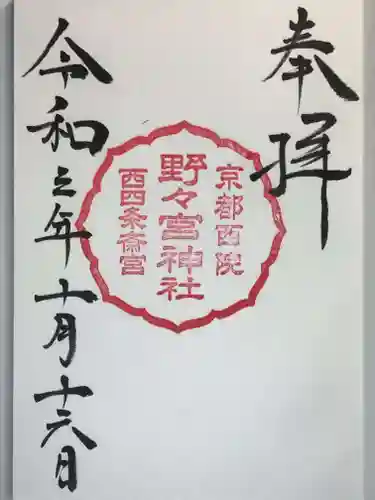 奉拝
京都西院
野々宮神社
西四条斎宮
令和三年十月十六日